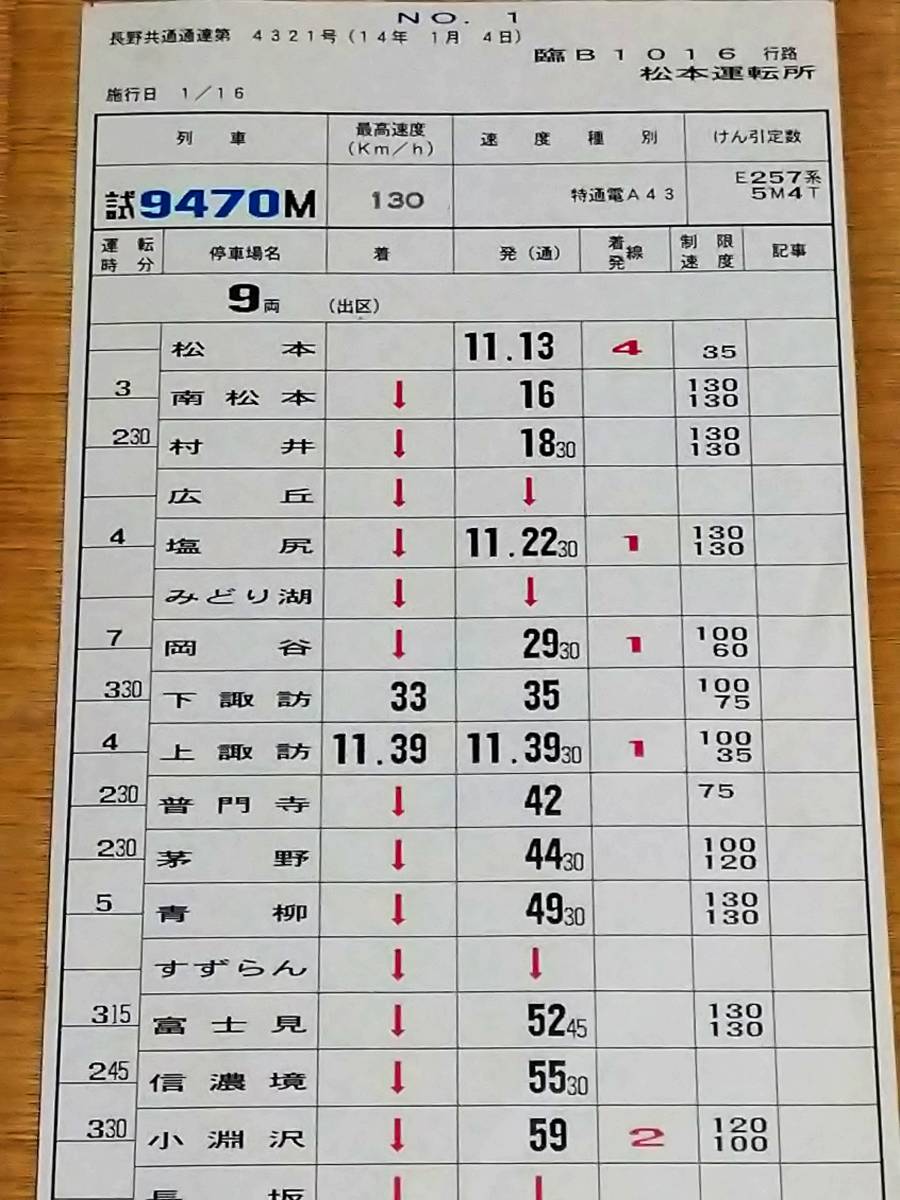 NO. 1
長野共通通達第 4321号(14年 1月 4日)
臨B1016 行路
松本運転所
施行日 1/16
列車 最高速度(Km/h) 速度種別 けん引定数
試9470M 130 特通電A43 E257系 5M4T
運転時分 停車場名 着 発(通) 着発線 制限速度 記事
9両 (出区)
松本 11.13 4 35
3 南松本 ↓ 16 130 130
230 村井 ↓ 1830 130 130
広丘 ↓ ↓
4 塩尻 ↓ 11.2230 1 130 130
みどり湖 ↓ ↓
7 岡谷 ↓ 2930 1 100 60
330 下諏訪 33 35 100 75
4 上諏訪 11.39 11.3930 1 100 35
230 普門寺 ↓ 42 75
230 茅野 ↓ 4430 100 120
5 青柳 ↓ 4930 130 130
すずらん ↓ ↓
315 富士見 ↓ 5245 130 130
245 信濃境 ↓ 5530
330 小淵沢 ↓ 59 2 120 100
長坂 ↓ ↓